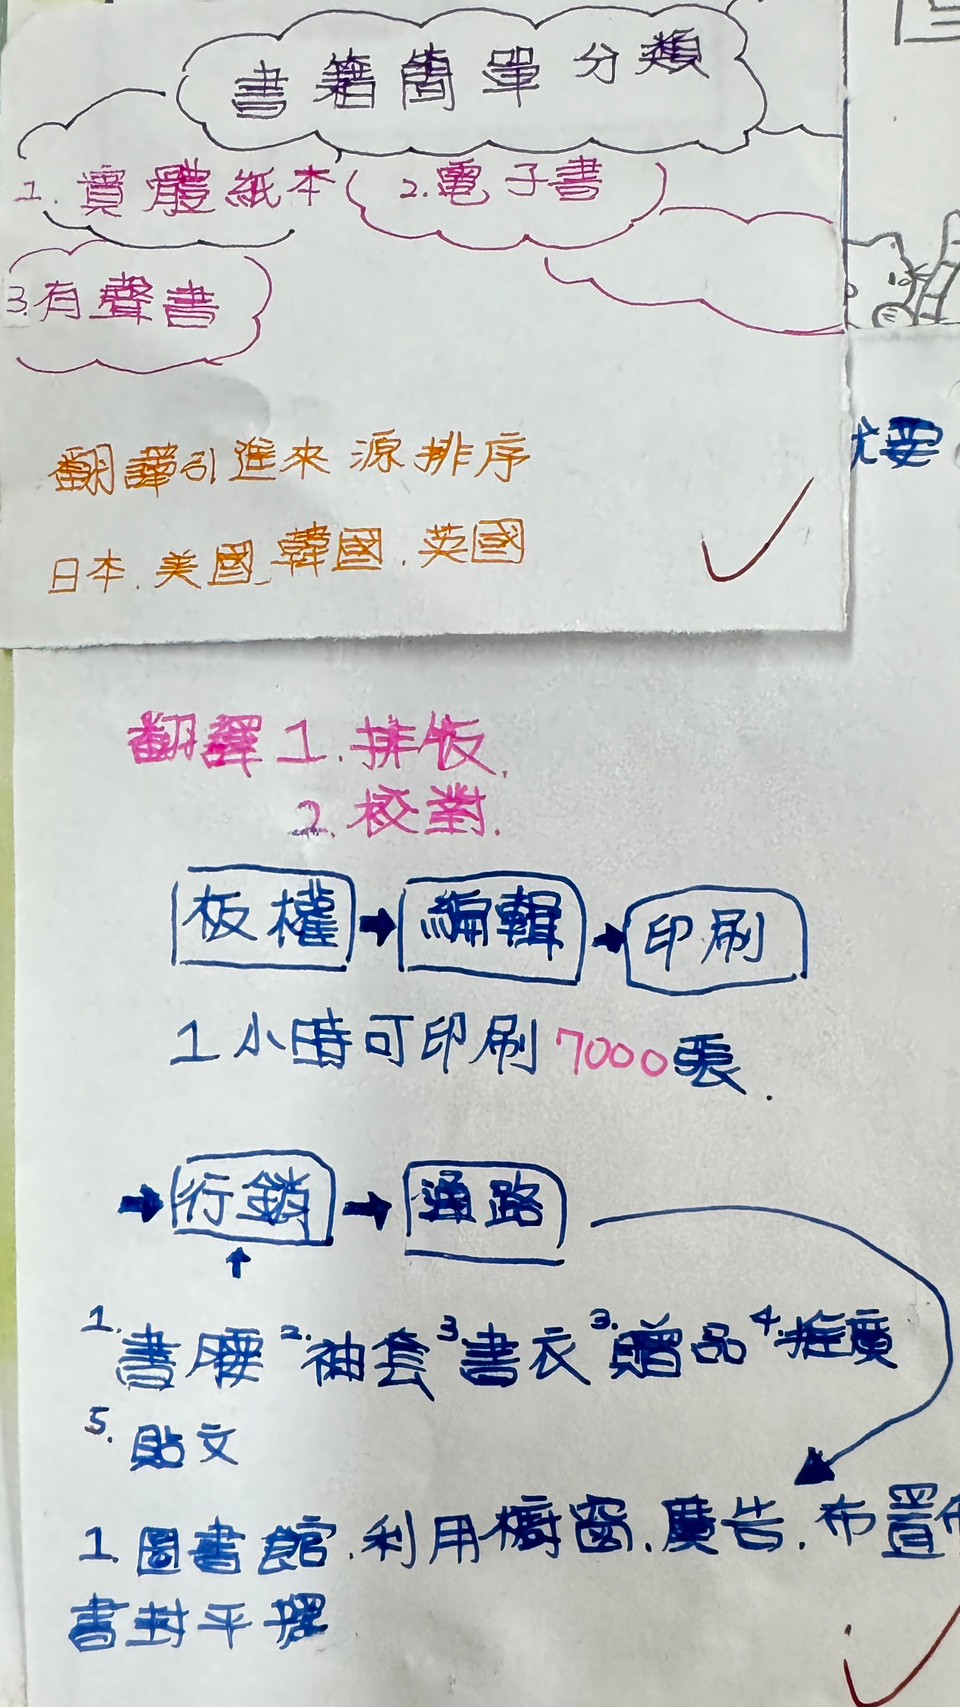 書籍簡單分類
1. 實體紙本 2. 電子書
3. 有聲書
翻譯引進來源排序
日本.美國.韓國.英國
尤要
翻譯 1. 排版.
2. 校對.
板權 編輯 印刷
1小時可印刷7000張.
行銷 通路
1. 書腰 2. 袖套 3 書衣 3. 贈品 4. 推廣
5. 貼文
1. 圖書館.利用櫥窗.廣告.布置
書封平擺